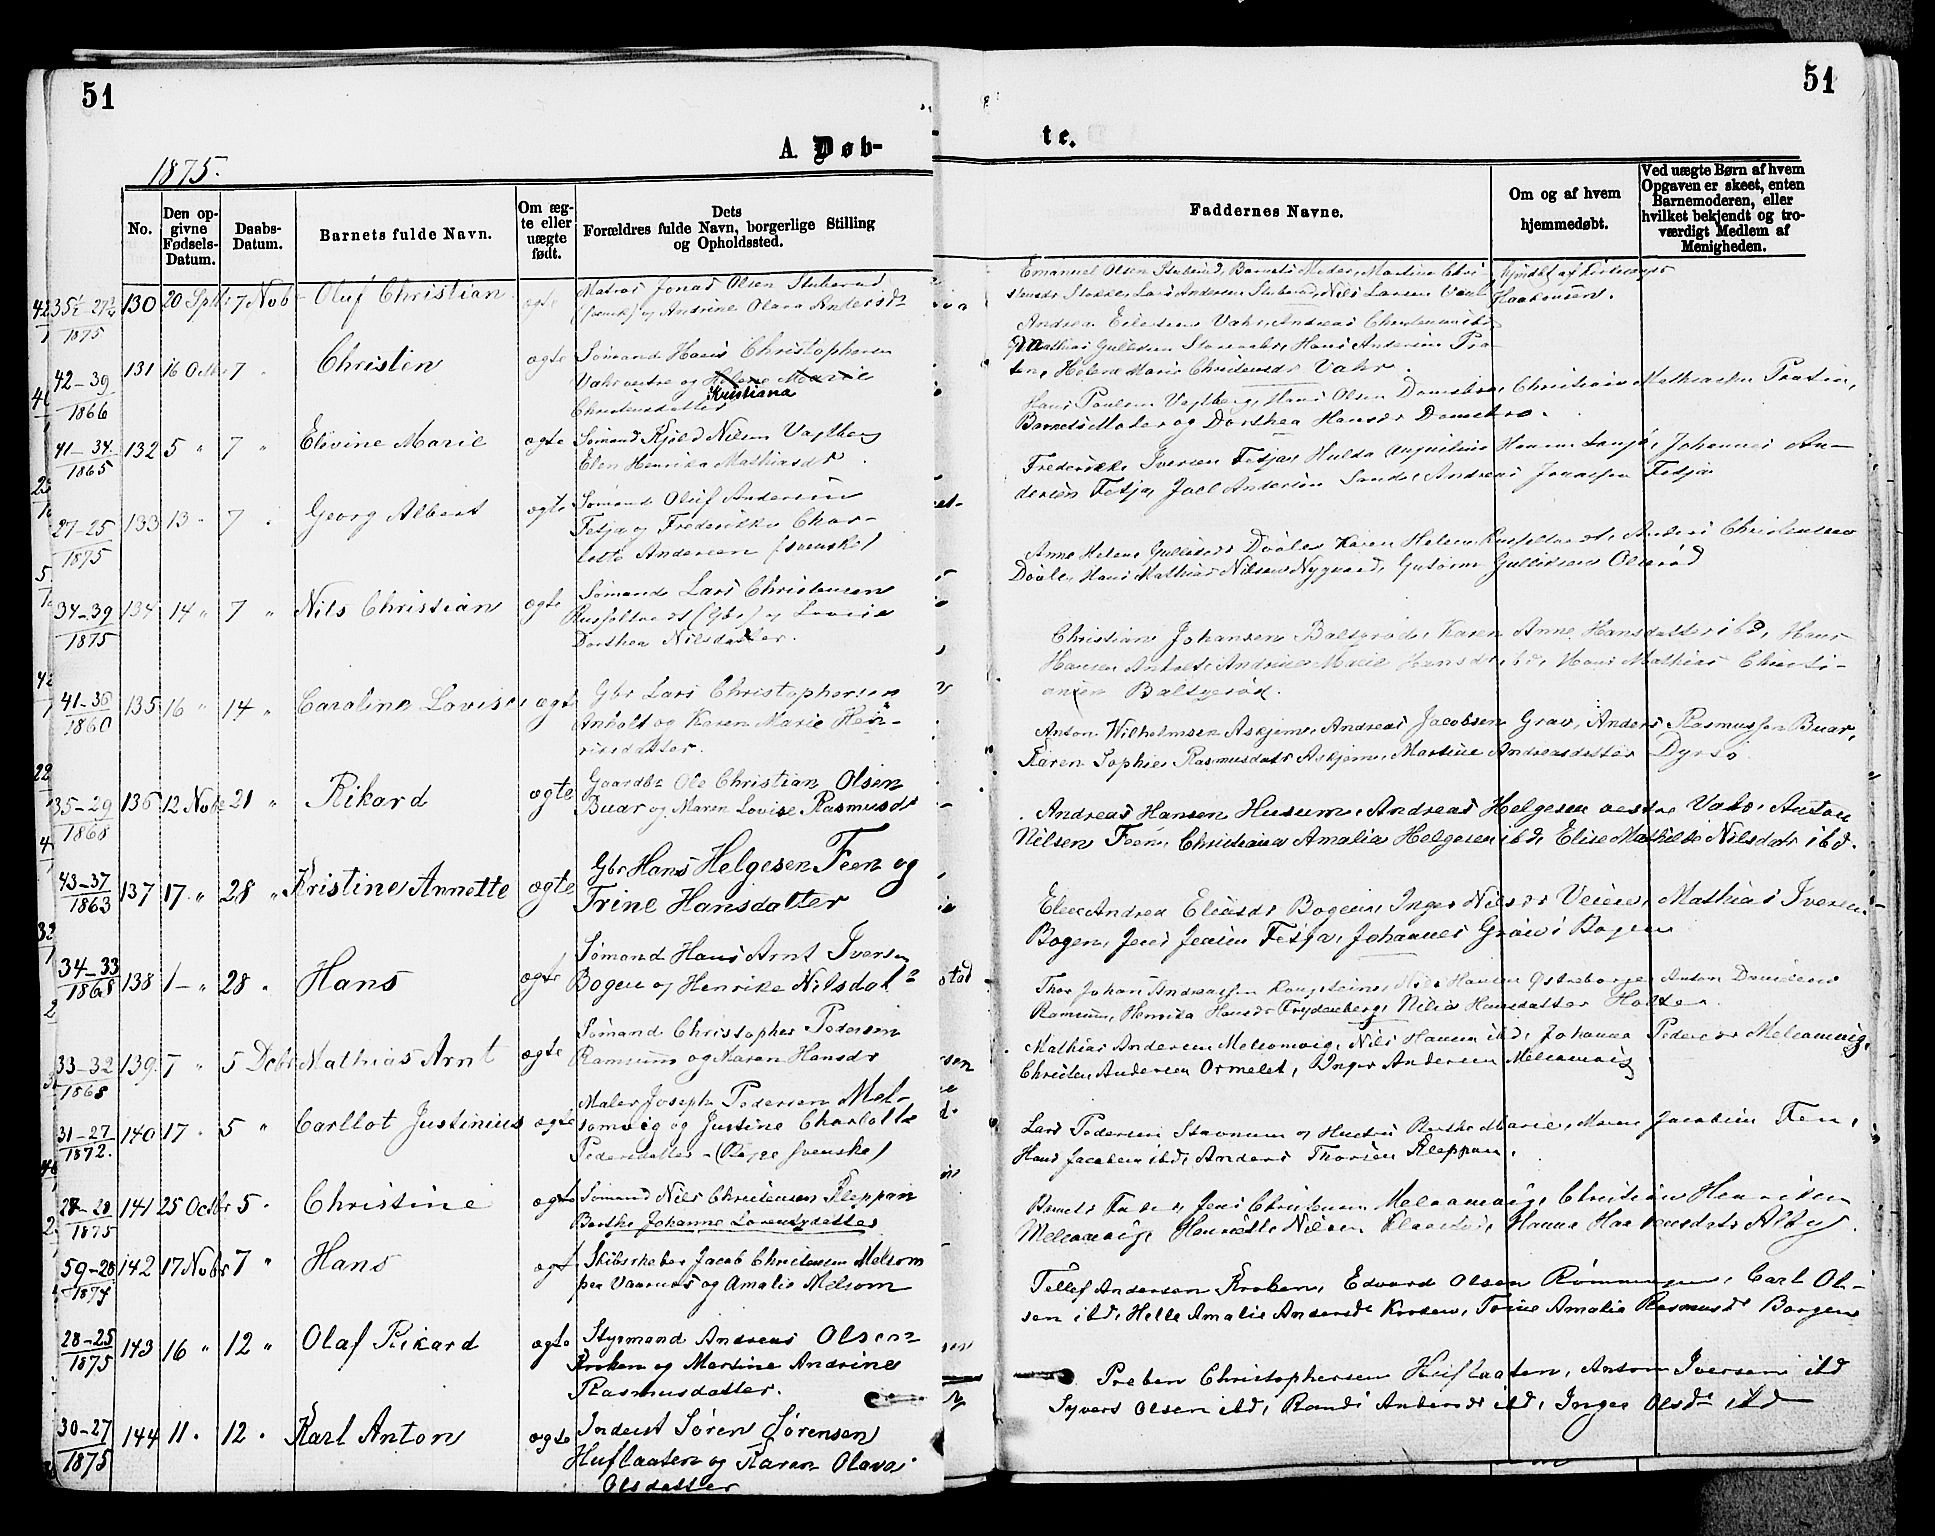 51
51
A. Døb-
te.
1875.
No.
Den op-
givne
Fødsels-
Datum.
Daabs-
Datum.
Barnets fulde Navn.
Om æg-
te eller
uægte
født.
Dets
Forældres fulde Navn, borgerlige Stilling
og Opholdssted.
Faddernes Navne.
Om og af hvem
hjemmedøbt.
Ved uægte Børn af hvem
Opgaven er skeet, enten
Barnemoderen, eller
hvilket bekjendt og tro-
værdigt Medlem af
Menigheden.
1875
130 20 Septbr 7 Nobr Oluf Christian ægte
Matros Jonas Olsen Stuberød
(svensk) og Andrine Olava Andersdr
Emanuel Olsen Stuberød, Barnets Moder, Martine Chri
Stokke, Lars Andersen Stuberød, Nils Larsen Vahl
Haakensen.
42-39
1866
131 16 Octbr 7 " Christen ægte
Sømand Hans Christophersen
Vahr vestre og Helene Marie
Kristiana
Christensdatter
Andrea Vahr, Andreas Christensen ibd
Mathias Gulliksen, Hans Andersen Pra-
ten, Helene Marie Christensdr Vahr.
41-34
1865
132 5 " 7 " Elevine Marie ægte
Sømand Kjeld Nilsen Vagtberg
Elen Henrika Mathiasdr
Hans Paulsen Vagtberg, Hans Olsen Domsbro, Christian Mathiassen Praten,
Barnets Moder og Dorthea Hansdr Domsbro.
27-25
1875
133 13 " 7 " Georg Albert ægte
Sømand Oluf Andersen
Fetja og Frederikke Char-
lotte Andersen (svenske)
Frederikke Iversen Fetja, Hulda Augustine Hansen, Johannes An-
dersen Fetja, Joel Andersen Sande, Andreas Jonassen Fetja
34-39
1875
134 14 " 7 " Nils Christian ægte
Sømand Lars Christensen
(Gbr) og Lovise
Dorthea Nilsdatter.
Anne Helene Gulliksdr Døvle, Karen Helene, Anders Christensen
Døvle, Hans Mathias Nilsen Nygaard, Gutorm Gulliksen Olsrød
41-36
1860
135 16 " 14 " Caroline Lovise ægte
Gbr Lars Christophersen
Anholt og Karen Marie Hen-
riksdatter.
Christian Johansen Baltzerød, Karen Anne Hansdatter ibd, Hans
Hansen Anholt, Andrine Marie Hansdr ibd, Hans Mathias Christi-
ansen Baltzerød.
35-29
1868
136 12 Nobr 21 " Rikard ægte
Gaardbr Ole Christian Olsen
Buar og Maren Lovise Rasmusdr
Anton Wilhelmsen Askjem, Andreas Jacobsen Grav, Anders Rasmussen Buar,
Karen Sophie Rasmusdatr Askjem, Martine Andreasdatter Dyrsø
43-37
1863
137 17 " 28 " Kristine Annette ægte
Gbr Hans Helgesen Feen og
Trine Hansdatter
Andreas Hansen Husum, Andreas Helgesen vestre Vahr, Anton
Nilsen Feen, Christiane Amalia Helgesen ibd, Elise Mathilde Nilsdatr ibd.
34-33
1868
138 1 - " 28 " Hans ægte
Sømand Hans Arnt Iversen
Bogen og Henrike Nilsdatr
Elee Andrea Eliasdr Bogen, Inger Nilsdr Veiere, Mathias Iversen
Bogen, Jens Jensen Fetja, Johannes Bogen
33-32
1868
139 7 " 5 Decbr Mathias Arnt ægte
Sømand Christopher Pedersen
Ramsum og Maren Hansdr
Thor Johan Andreassen, Nils Hansen Østreborge, Anton Danielsen
Ramsum, Henrika Hansdr Frydenberg, Nilia Hansdatter Holten.
31-27
1872.
140 17 " 5 " Carllot Justinius ægte
Maler Joseph Pedersen Mel-
somvig og Justine Charlotte
Pedersdatter - (svenske)
Mathias Andersen Melsomvig, Nils Hansen ibd, Johanna Pedersdr Melsomvig,
Christen Andersen Ormelet, Inger Andersen Melsomvig
28-28
1875
141 25 Octbr 5 " Christine ægte
Sømand Nils Christensen Kleppan
Berthe Johanne Lorentzdatter
Lars Pedersen Stavnum og Hustru Berthe Marie, Maren Jacobsen Fen,
Hans Jacobsen ibd, Anders Thorsen Kleppan.
59-28
1874
142 17 Nobr 7 " Hans ægt
Skibsreder Jacob Christensen Melsom
paa Vaarnæs og Amalie Melsom
Barnets Fader, Jens Christensen Melsomvig, Christian Henriksen
Melsomvig, Henriette Nilsen, Hanna Haakensdatr Alby.
28-25
1875
143 16 " 12 " Olaf Rikard ægte
Styrmand Andreas Olsen
Kroken og Martine Andrine
Rasmusdatter.
Tellef Andersen Kroken, Edvard Olsen Rømmingen, Carl Ol-
sen ibd, Helle Amalie Andersdr Kroken, Trine Amalia Rasmusdr Borgen
30-27
1875
144 11 " 12 " Karl Anton ægte
Inderst Søren Sørensen
Huflaaten og Karen Olava
Olsdatter
Preben Christophersen Huflaaten, Anton Iversen ibd
Syvert Olsen ibd, Randi Andersdr ibd, Inger Olsdr ibd